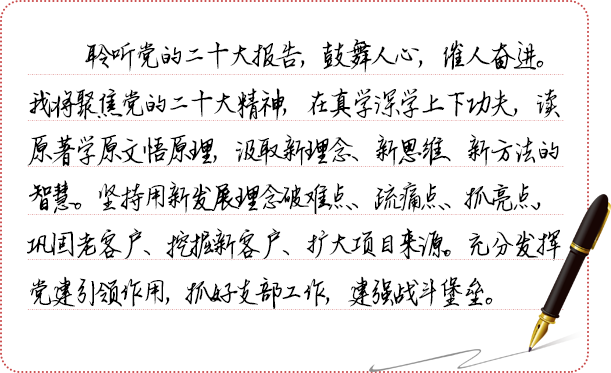 聆听党的二十大报告，鼓舞人心，催人奋进。
我将聚焦党的二十大精神，在真学深学上下功夫，读
原著学原文悟原理，汲取新理念、新思维、新方法的
智慧。坚持用新发展理念破难点、疏痛点、抓亮点，
巩固老客户、挖掘新客户、扩大项目来源。充分发挥
党建引领作用，抓好支部工作，建强战斗堡垒。